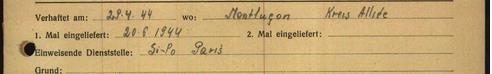 Verhaftet am: 29.4.44 wo: Montluçon Kreis Allide
1. Mal eingeliefert: 20.6.1944 2. Mal eingeliefert:
Einweisende Dienststelle: Si-Po Paris
Grund: